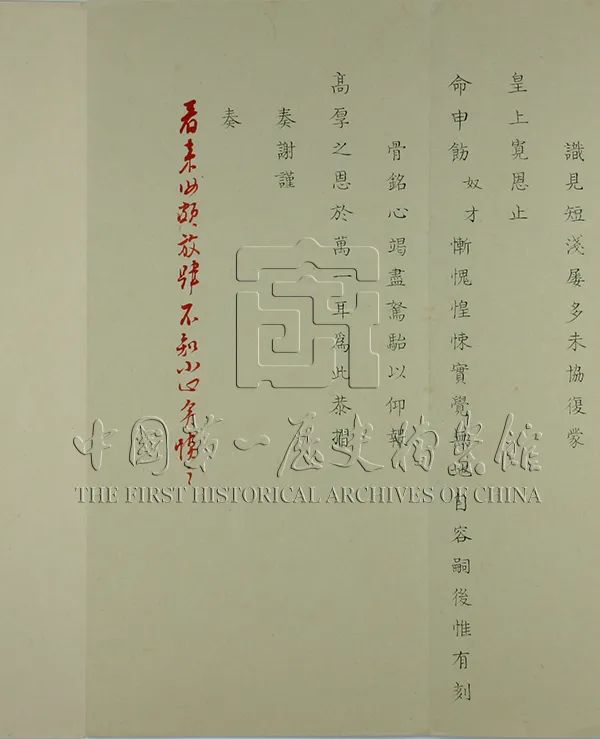 識見短淺屢多未協復蒙
皇上寬恩止
命申飭奴才慚愧惶悚實覺無地自容嗣後惟有刻
骨銘心竭盡駑駘以仰報
高厚之恩於萬一耳為此恭摺
奏謝謹
奏
看來汝頗放肆不知小心
中國第一歷史檔案館
THE FIRST HISTORICAL ARCHIVES OF CHINA